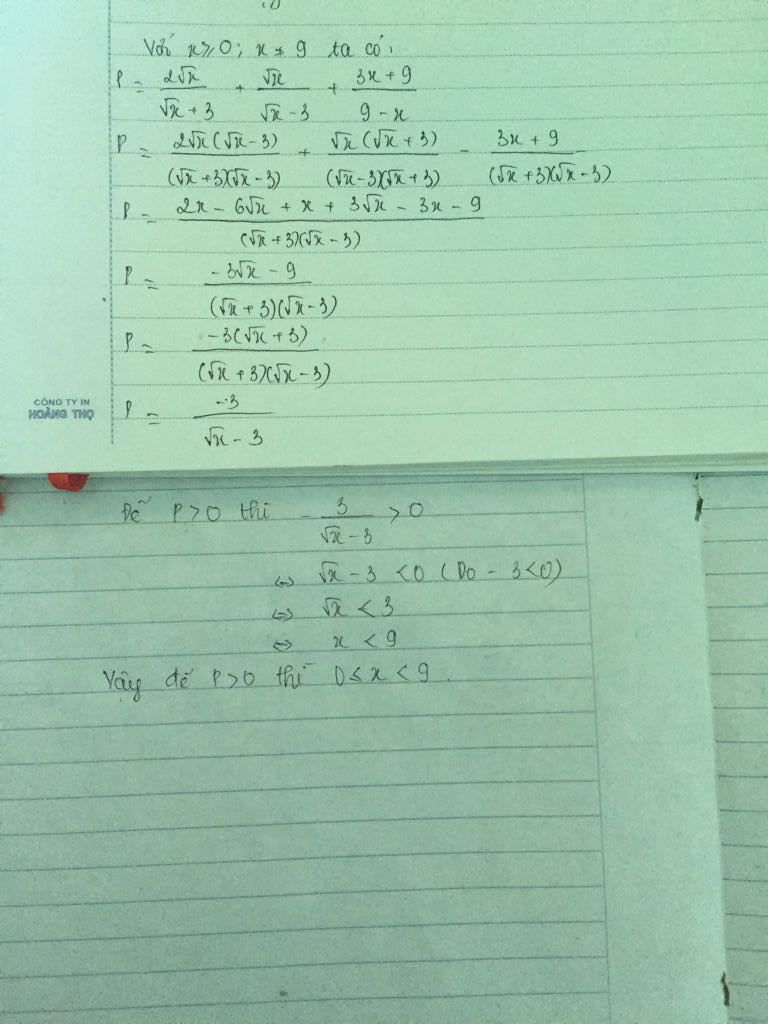 Với x ≥ 0 ; x ≠ 9 ta có:
P = 2√x / (√x + 3) + √x / (√x - 3) + (3x + 9) / (9 - x)
P = 2√x(√x - 3) / (√x + 3)(√x - 3) + √x(√x + 3) / (√x - 3)(√x + 3) - (3x + 9) / (√x + 3)(√x - 3)
P = (2x - 6√x + x + 3√x - 3x - 9) / (√x + 3)(√x - 3)
P = (-3√x - 9) / (√x + 3)(√x - 3)
P = -3(√x + 3) / (√x + 3)(√x - 3)
P = -3 / (√x - 3)
CÔNG TY IN
HOÀNG THỌ
Để P > 0 thì - 3 / (√x - 3) > 0
⇔ √x - 3 < 0 (Do - 3 < 0)
⇔ √x < 3
⇔ x < 9
Vậy để P > 0 thì 0 ≤ x < 9.